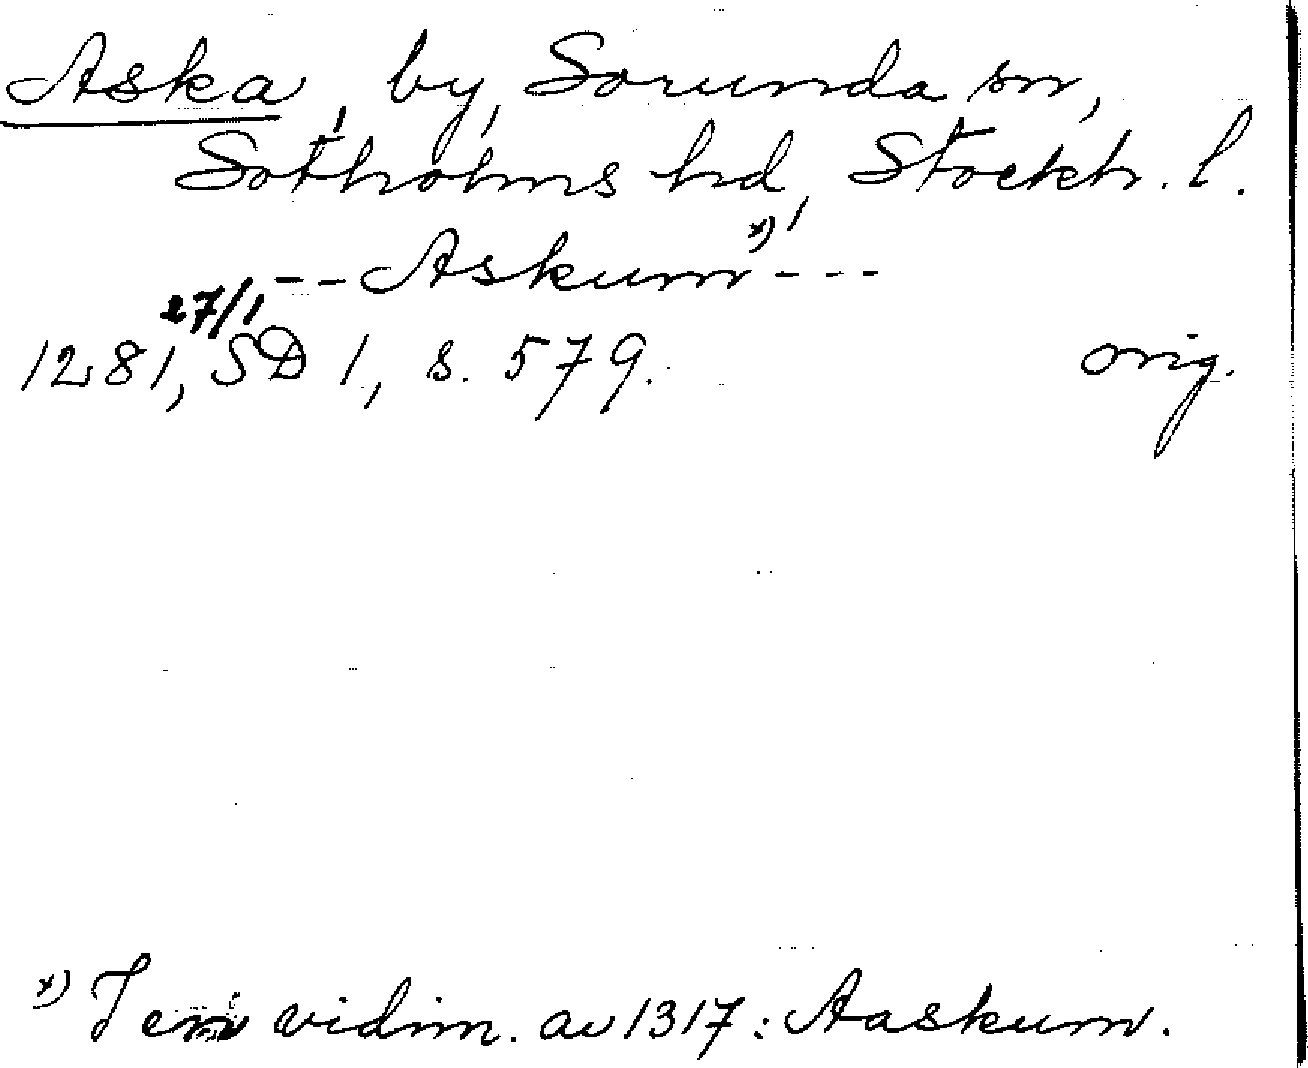 Aska, by, Sorunda sn,
Sotholms hd, Stockh. l.
-- Askum x) ---
27/1
1281, SD 1, s. 579. orig.
x) I en vidim. av 1317: Aaskum.